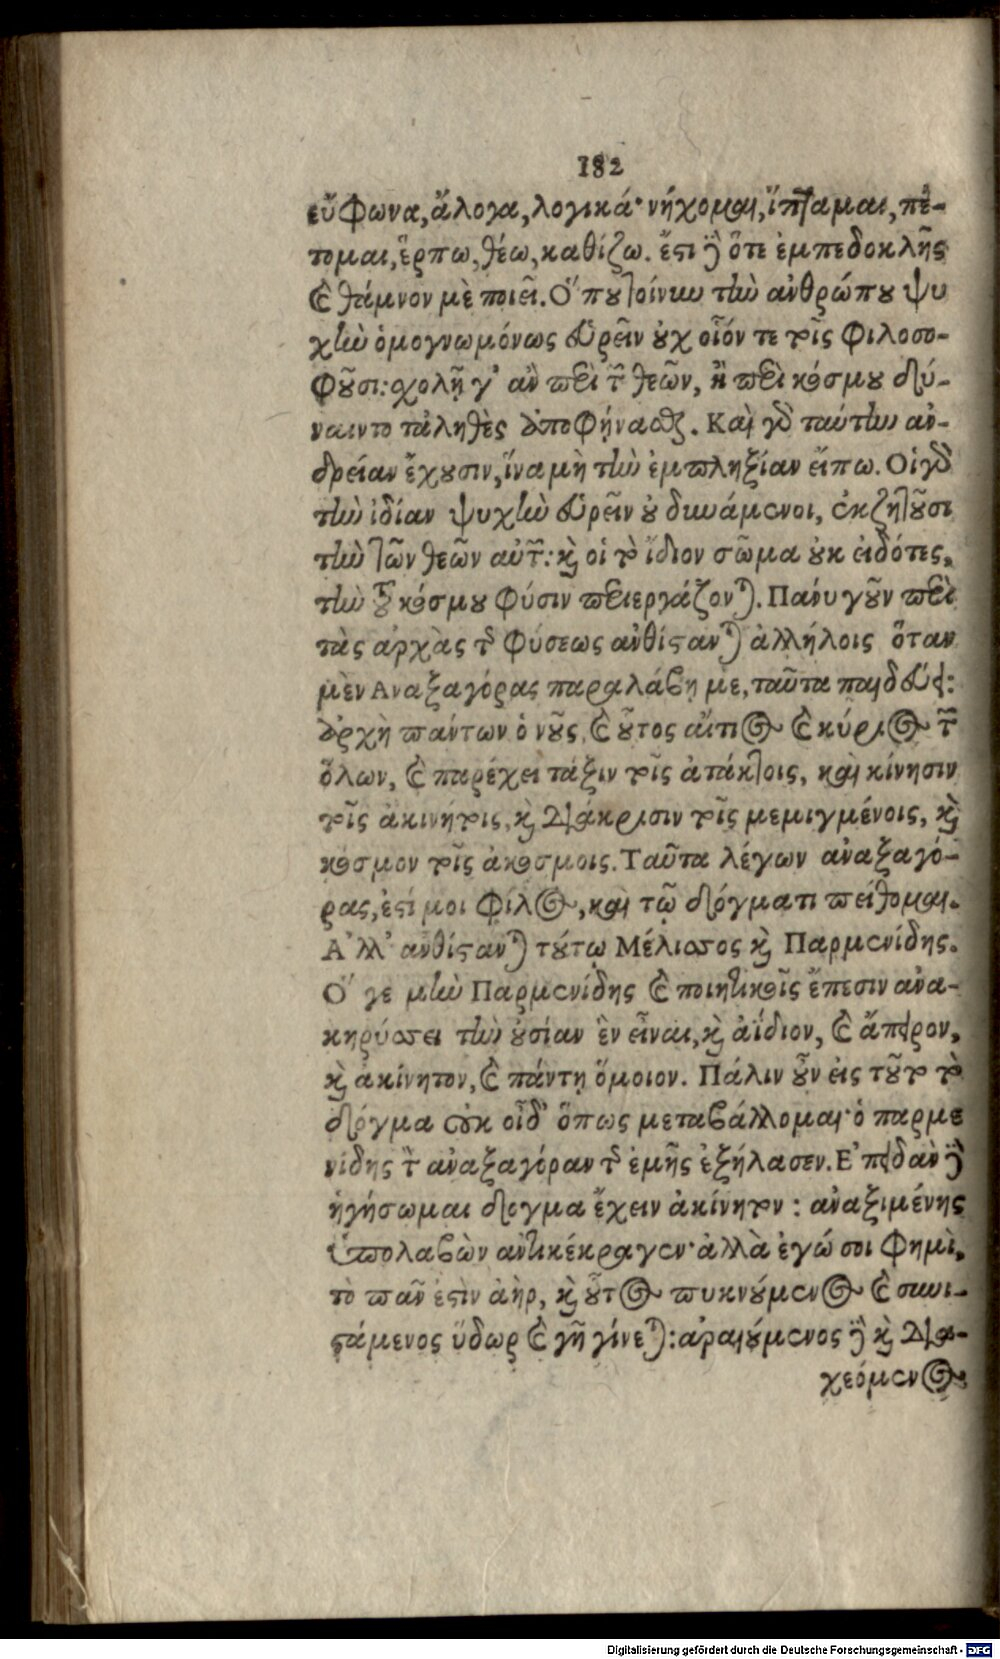 182
εὔφωνα, ἄλογα, λογικά· νήχομαι, ἵπταμαι, πέ-
τομαι, ἕρπω, θέω, καθίζω. ἔστι δὲ ὅτε ἐμπεδοκλῆς
καὶ θάμνον μὲ ποιεῖ. Ὅπου τοίνυν τὴν ἀνθρώπου ψυ
χὴν ὁμογνωμόνως εὑρεῖν οὐχ οἷόν τε τοῖς φιλοσο-
φοῦσι: σχολῇ γ' ἂν περὶ τῶν θεῶν, ἢ περὶ κόσμου δύ-
ναιντο τἀληθὲς ἀποφήνασθαι. Καὶ γὰρ ταύτην ἀν-
δρείαν ἔχουσιν, ἵνα μὴ τὴν ἐμπληξίαν εἴπω. Οἱ γὰρ
τὴν ἰδίαν ψυχὴν εὑρεῖν οὐ δυνάμενοι, ἐκζητοῦσι
τὴν τῶν θεῶν αὐτῶν: καὶ οἱ τὸ ἴδιον σῶμα οὐκ εἰδότες,
τὴν τοῦ κόσμου φύσιν περιεργάζονται. Πάνυ γοῦν περὶ
τὰς ἀρχὰς τῆς φύσεως ἀνθίστανται ἀλλήλοις ὅταν
μὲν Ἀναξαγόρας παραλάβῃ με, ταῦτα παιδεύει:
ἀρχὴ πάντων ὁ νοῦς, καὶ οὗτος αἴτιος καὶ κύριος τῶν
ὅλων, καὶ παρέχει τάξιν τοῖς ἀτάκτοις, καὶ κίνησιν
τοῖς ἀκινήτοις, καὶ διάκρισιν τοῖς μεμιγμένοις, καὶ
κόσμον τοῖς ἀκόσμοις. Ταῦτα λέγων ἀναξαγό-
ρας, ἐστί μοι φίλος, καὶ τῷ δόγματι πείθομαι.
Ἀλλ' ἀνθίστανται τούτῳ Μέλισσος καὶ Παρμενίδης.
Ὅ γε μὴν Παρμενίδης καὶ ποιητικοῖς ἔπεσιν ἀνα-
κηρύσσει τὴν οὐσίαν ἓν εἶναι, καὶ ἀΐδιον, καὶ ἄπειρον,
καὶ ἀκίνητον, καὶ πάντη ὅμοιον. Πάλιν οὖν εἰς τοῦτο τὸ
δόγμα οὐκ οἶδ' ὅπως μεταβάλλομαι· ὁ παρμε
νίδης τὸν ἀναξαγόραν τῆς ἐμῆς ἐξήλασεν. Ἐπειδὰν δὲ
ἡγήσωμαι δόγμα ἔχειν ἀκίνητον: ἀναξιμένης
ὑπολαβὼν ἀντικέκραγεν· ἀλλὰ ἐγώ σοι φημὶ,
τὸ πᾶν ἐστὶν ἀὴρ, καὶ οὗτος πυκνούμενος καὶ συνι-
στάμενος ὕδωρ καὶ γῆ γίνεται: ἀραιούμενος δὲ καὶ δια-
χεόμενος
Digitalisierung gefördert durch die Deutsche Forschungsgemeinschaft - DFG